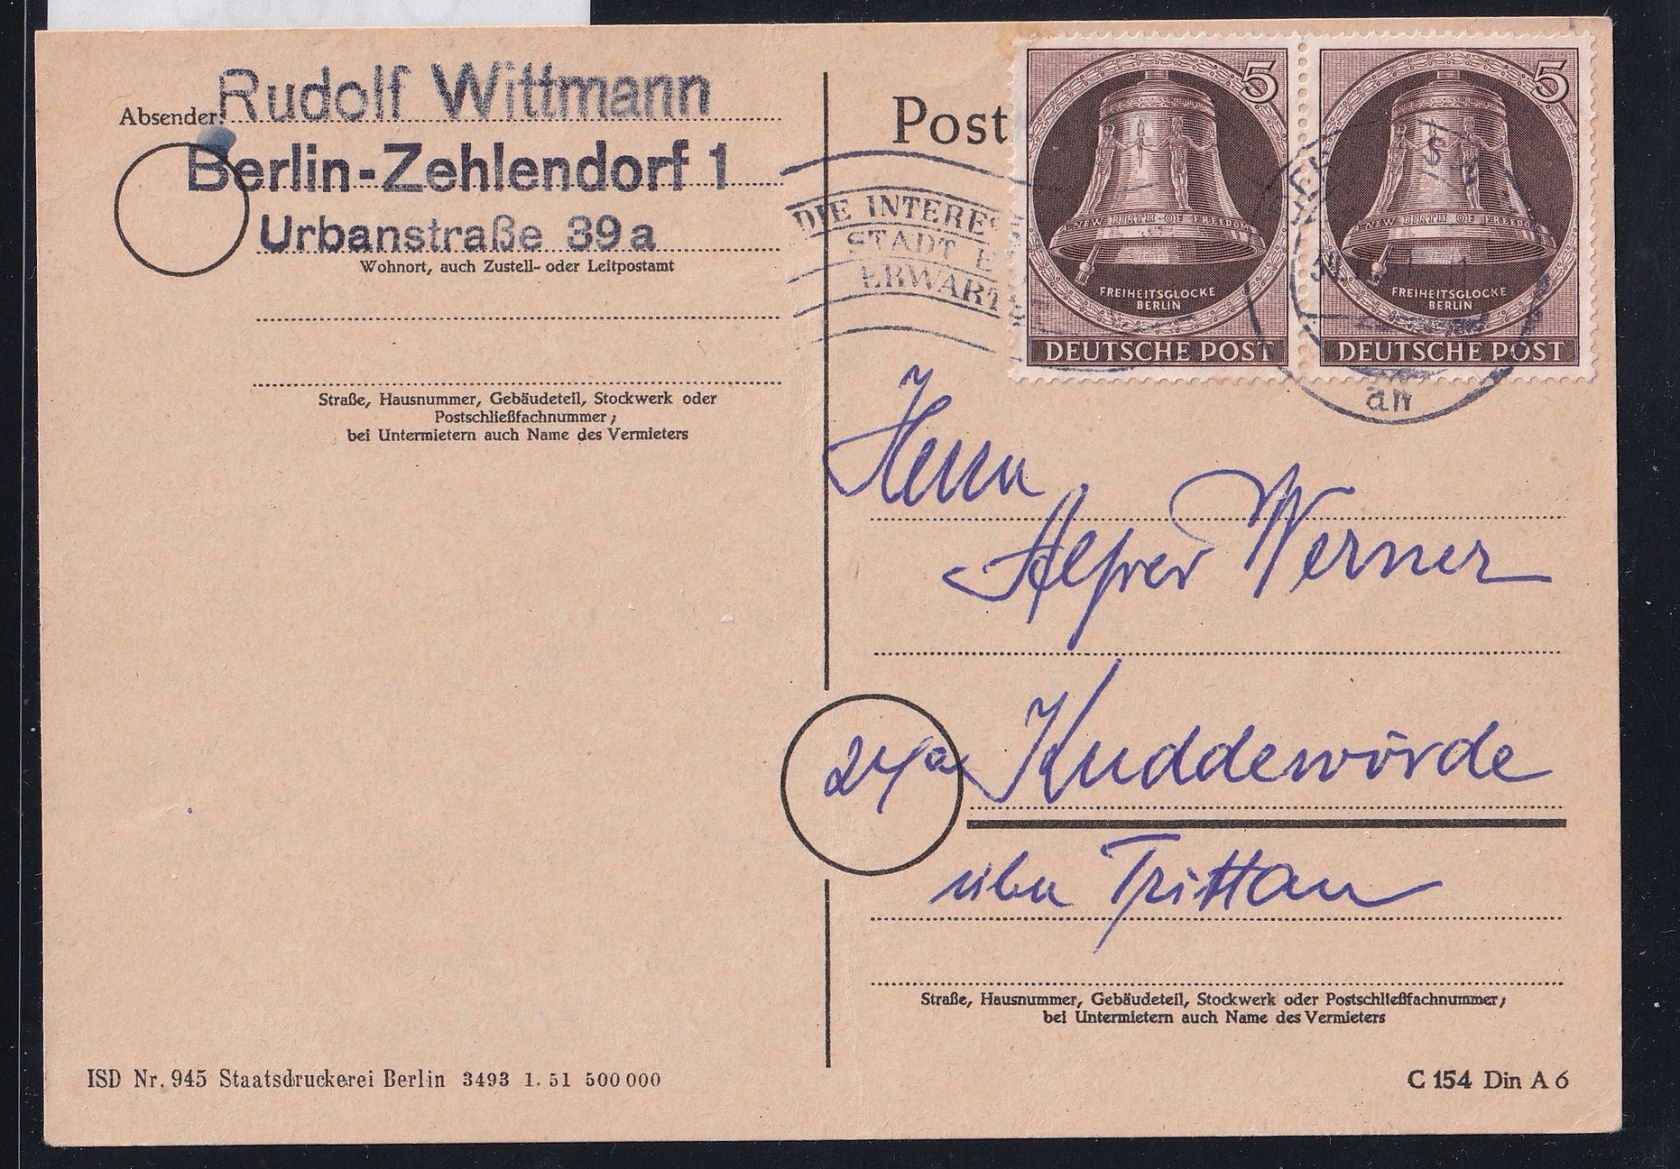 Absender: Rudolf Wittmann
Berlin-Zehlendorf 1
Urbanstraße 39a
Wohnort, auch Zustell- oder Leitpostamt
Straße, Hausnummer, Gebäudeteil, Stockwerk oder
Postschließfachnummer;
bei Untermietern auch Name des Vermieters
Post
DIE INTERES
STADT
ERWART
5
NEW BIRTH OF FREEDOM
FREIHEITSGLOCKE
BERLIN
DEUTSCHE POST
5
NEW BIRTH OF FREEDOM
FREIHEITSGLOCKE
BERLIN
DEUTSCHE POST
an
Herrn
Alfred Werner
24a Kuddewörde
über Trittau
Straße, Hausnummer, Gebäudeteil, Stockwerk oder Postschließfachnummer;
bei Untermietern auch Name des Vermieters
ISD Nr. 945 Staatsdruckerei Berlin 3493 1. 51 500 000
C 154 Din A 6